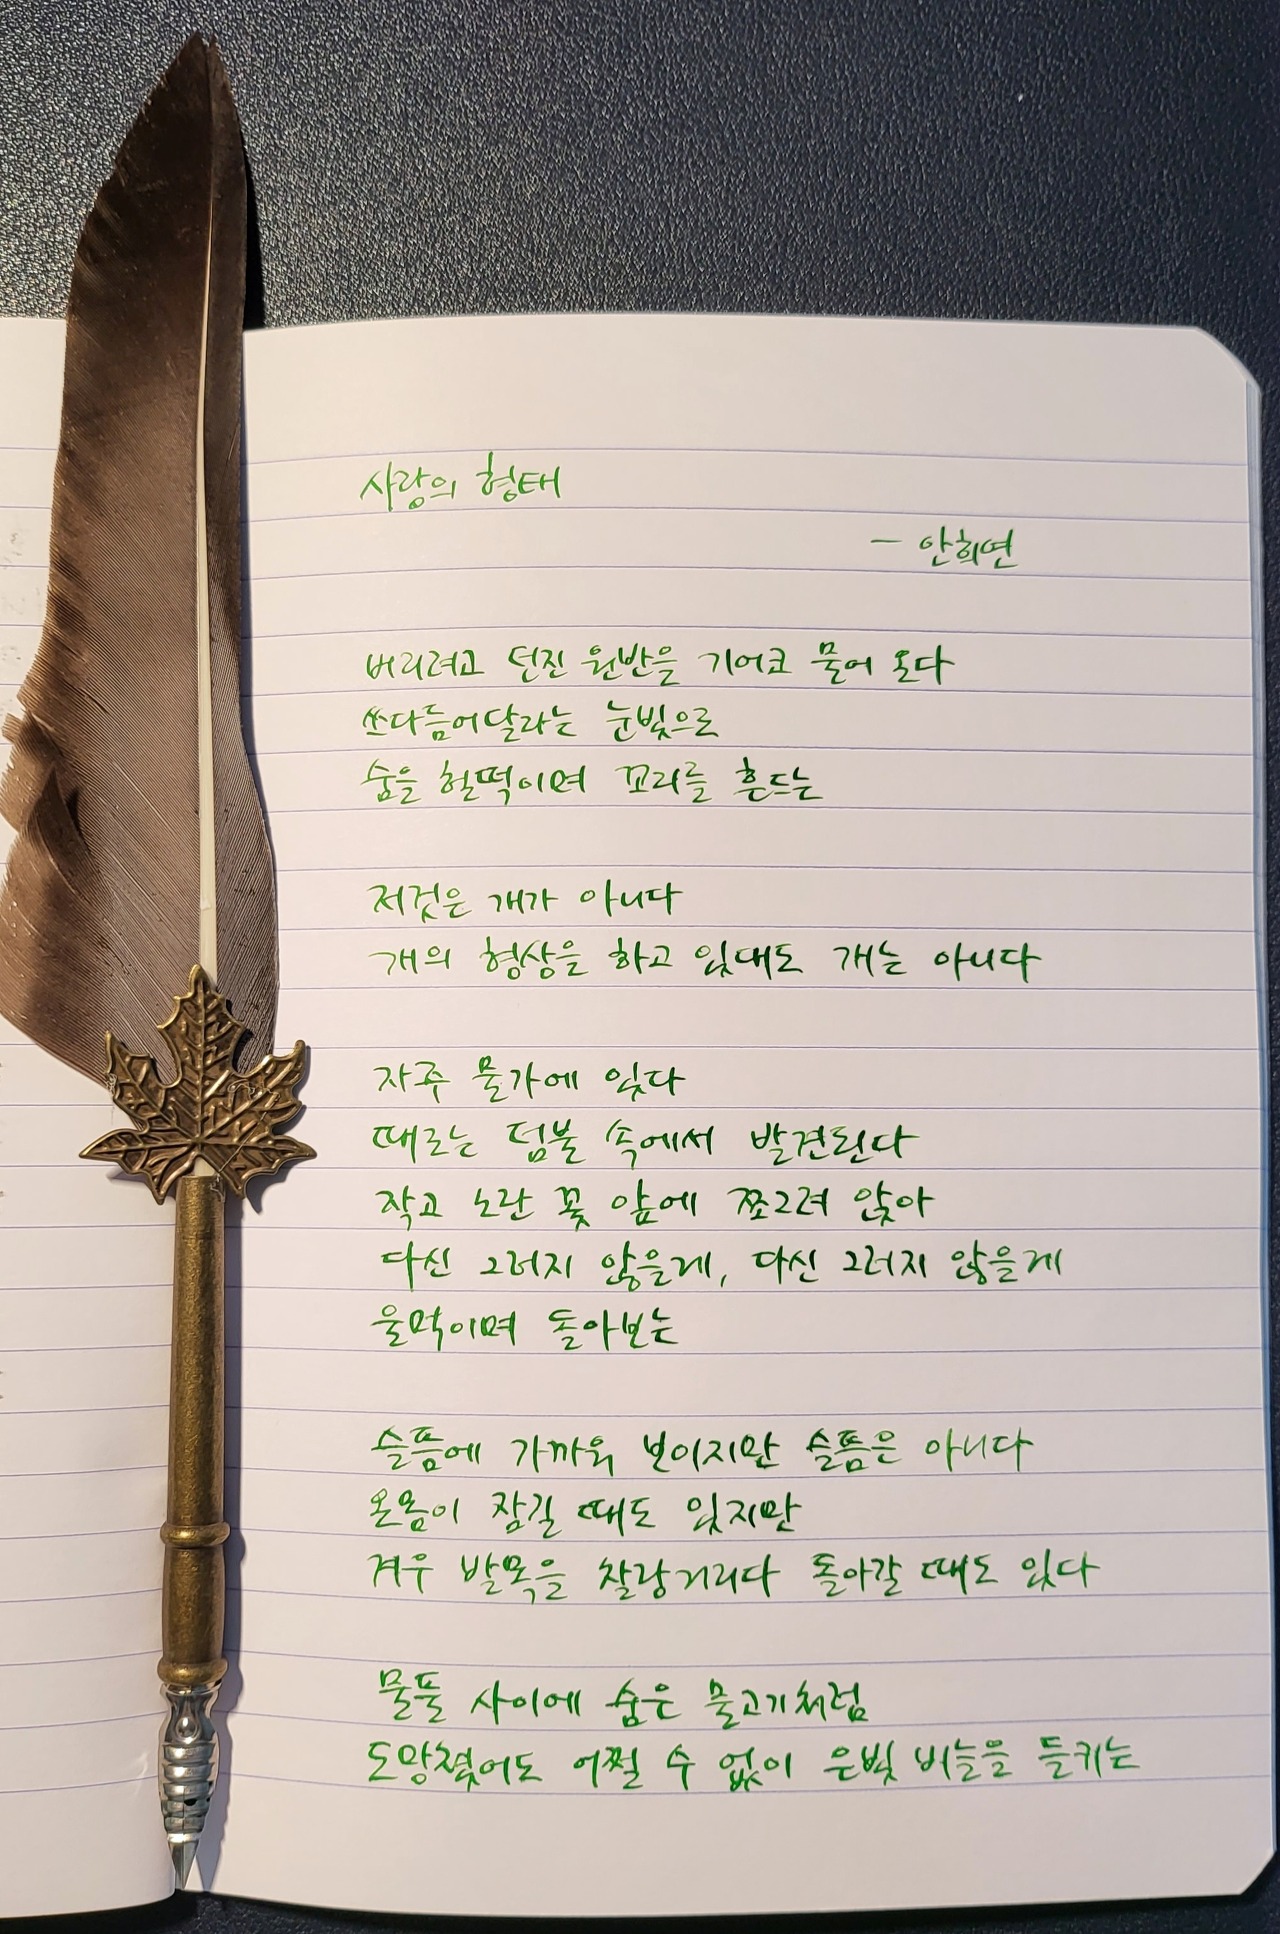 사랑의 형태
- 안희연
버리려고 던진 원반을 기어코 물어 온다
쓰다듬어달라는 눈빛으로
숨을 헐떡이며 꼬리를 흔드는
저것은 개가 아니다
개의 형상을 하고 있대도 개는 아니다
자주 물가에 있다
때로는 덤불 속에서 발견된다
작고 노란 꽃 앞에 쪼그려 앉아
다신 그러지 않을게, 다신 그러지 않을게
울먹이며 돌아보는
슬픔에 가까워 보이지만 슬픔은 아니다
온몸이 잠길 때도 있지만
겨우 발목을 찰랑거리다 돌아갈 때도 있다
물풀 사이에 숨은 물고기처럼
도망쳤어도 어쩔 수 없이 은빛 비늘을 들키는